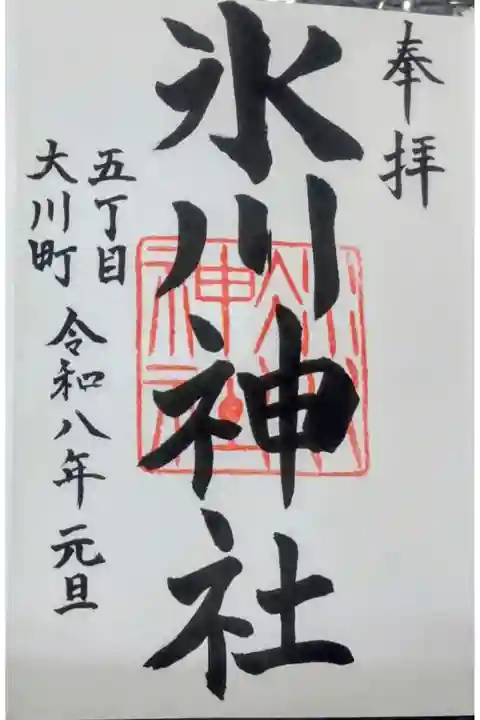 奉拝
氷川神社
五丁目
大川町
令和八年 元旦